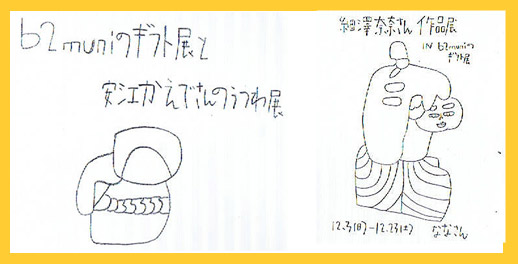 b2muniのギフト展と
安江かえでさんのうつわ展
細澤奈奈さん 作品展
IN b2muniの
ギフト展
12.3(日)-12.23(土)
ななさん